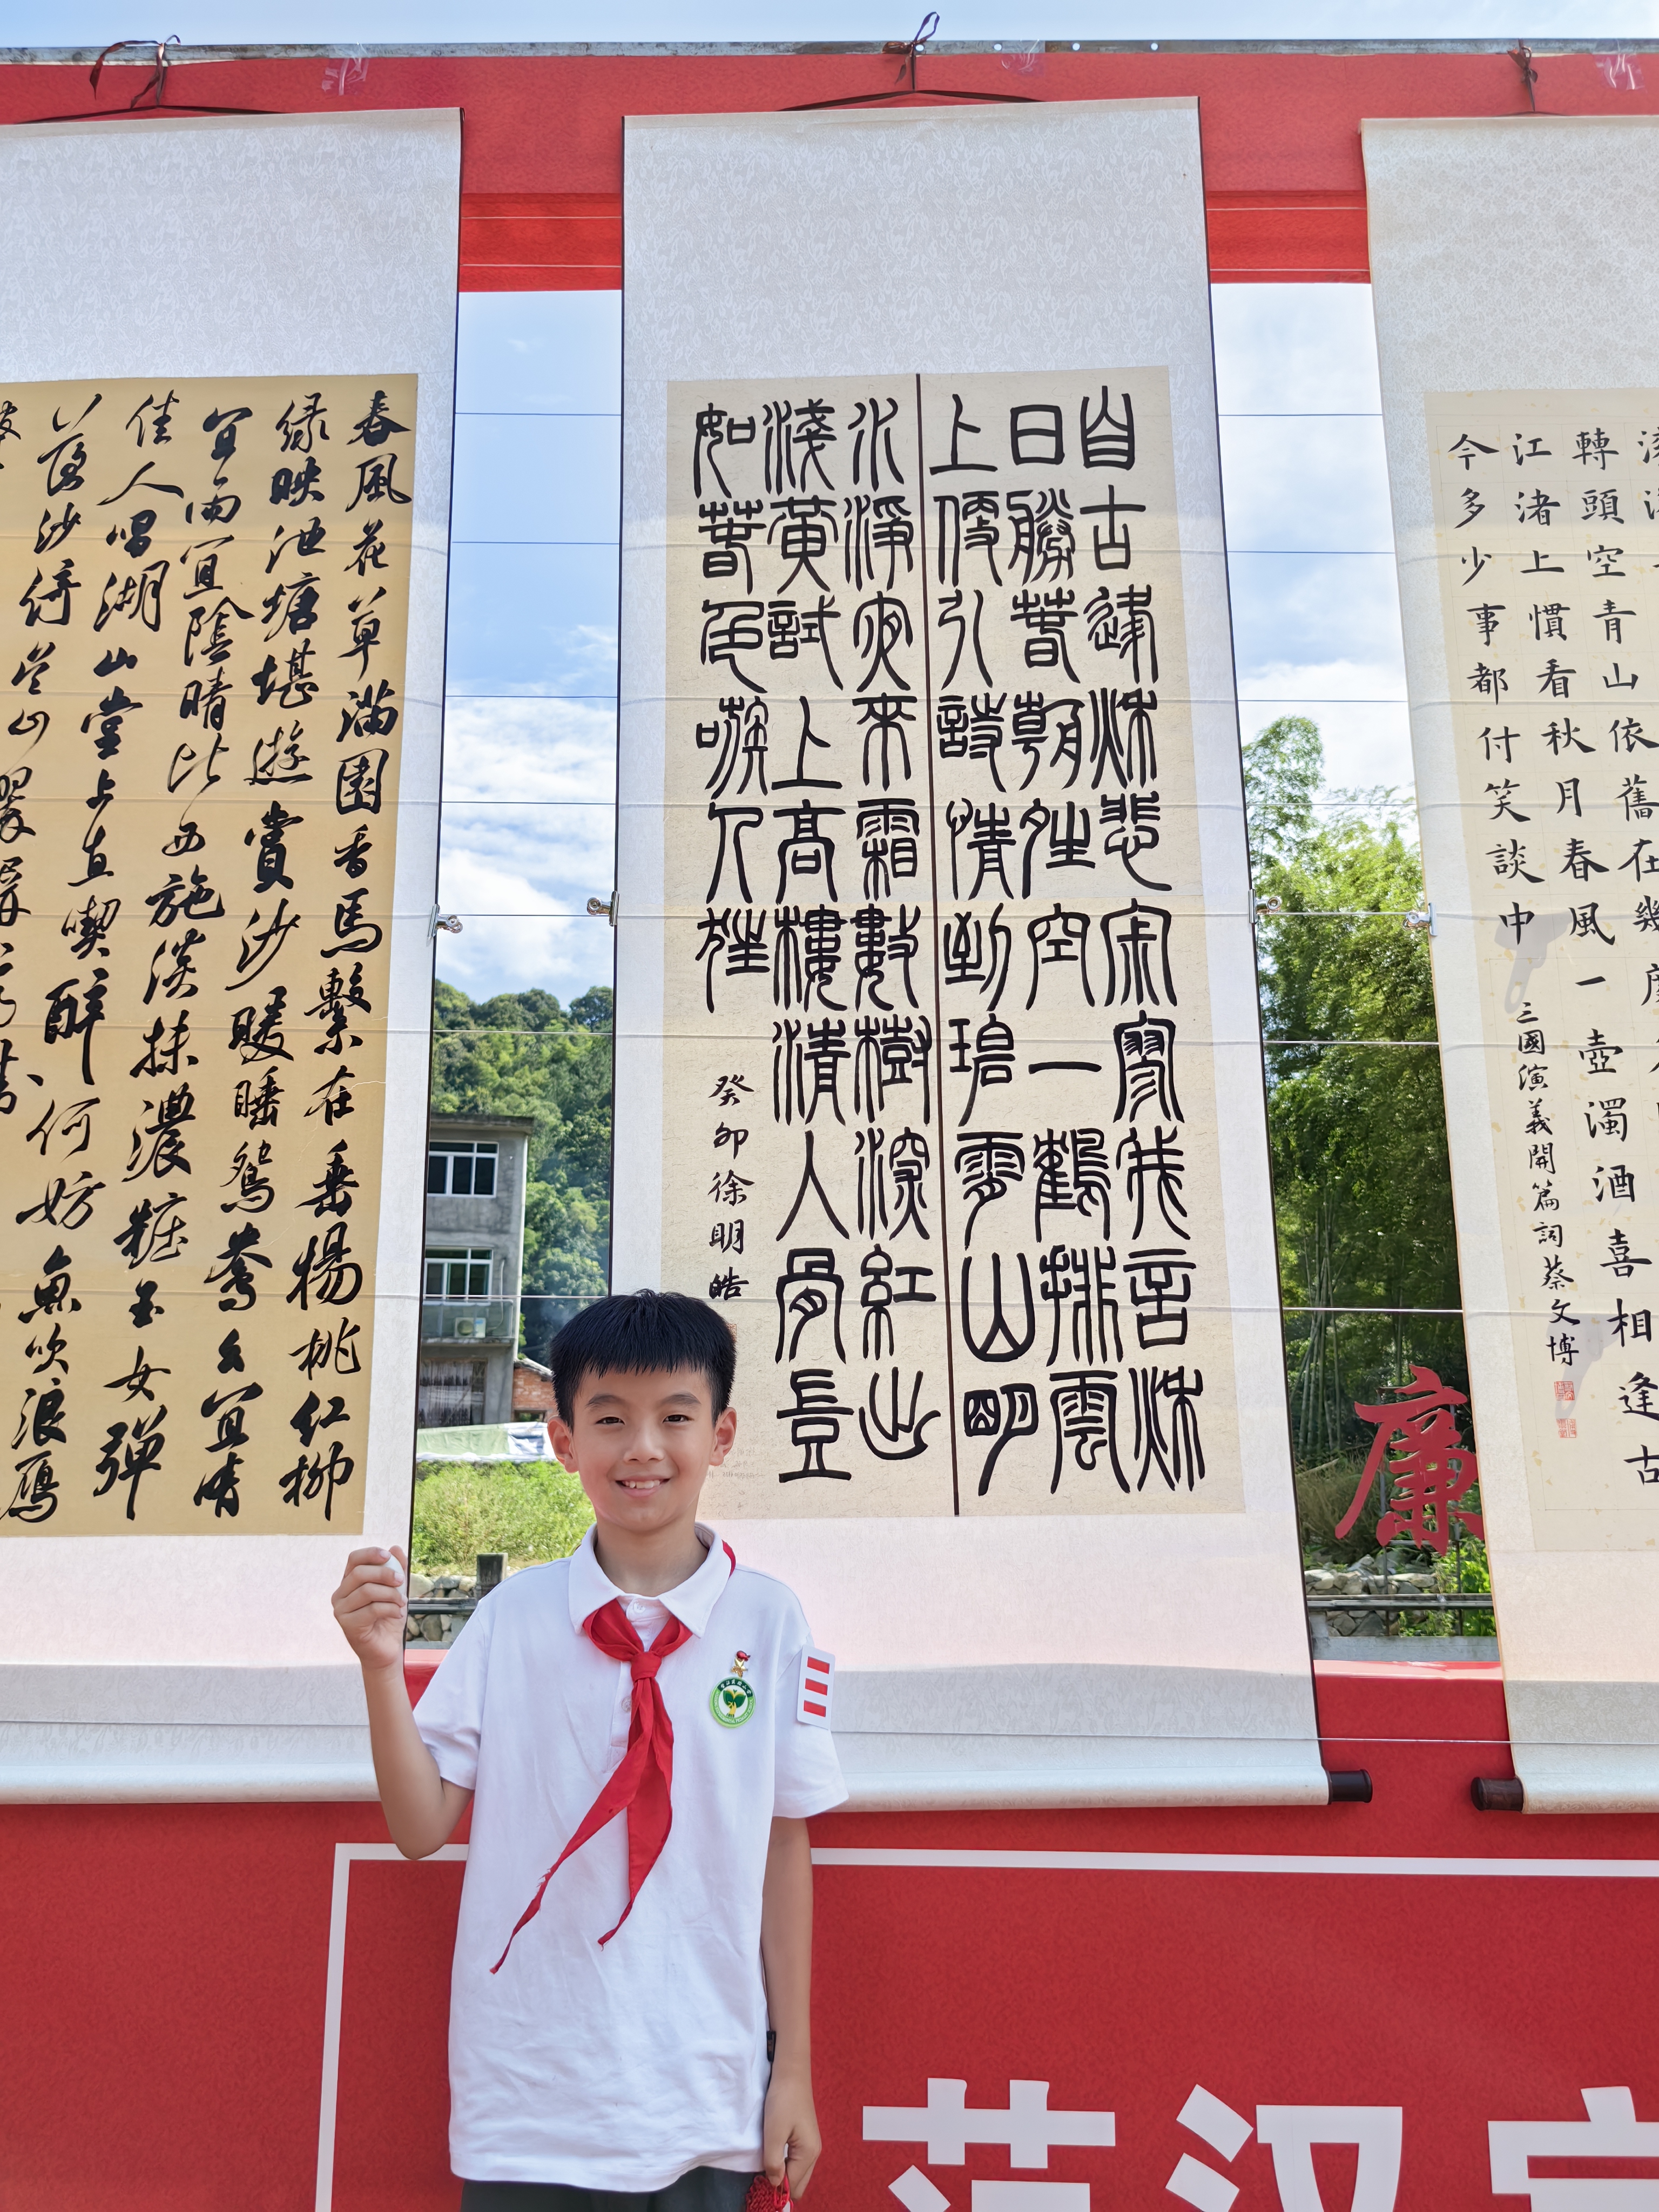 春風花草滿園香馬繫在垂楊桃红柳
绿映池塘堪遊賞沙暖睡鴛鴦々宜晴
宜雨宜陰晴比西施淡抹濃粧玉女彈
佳人唱湖山堂上直喫醉何妨魚吹浪鴈
落沙倚吴山翠屏
自古逢秋悲寂寥我言秋
日勝春朝晴空一鶴排雲
上便引詩情到碧霄山明
水淨夜來霜數樹深紅出
淺黃試上高樓清入骨豈
如春色嗾人狂
癸卯徐明皓
轉頭空青山依舊在幾
江渚上慣看秋月春風一壺濁酒喜相逢古
今多少事都付笑談中
三國演義開篇詞蔡文博
廉
范汉